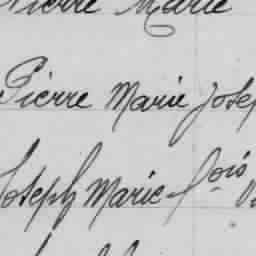 Pierre Marie
Pierre Marie Josep
Joseph Marie fois